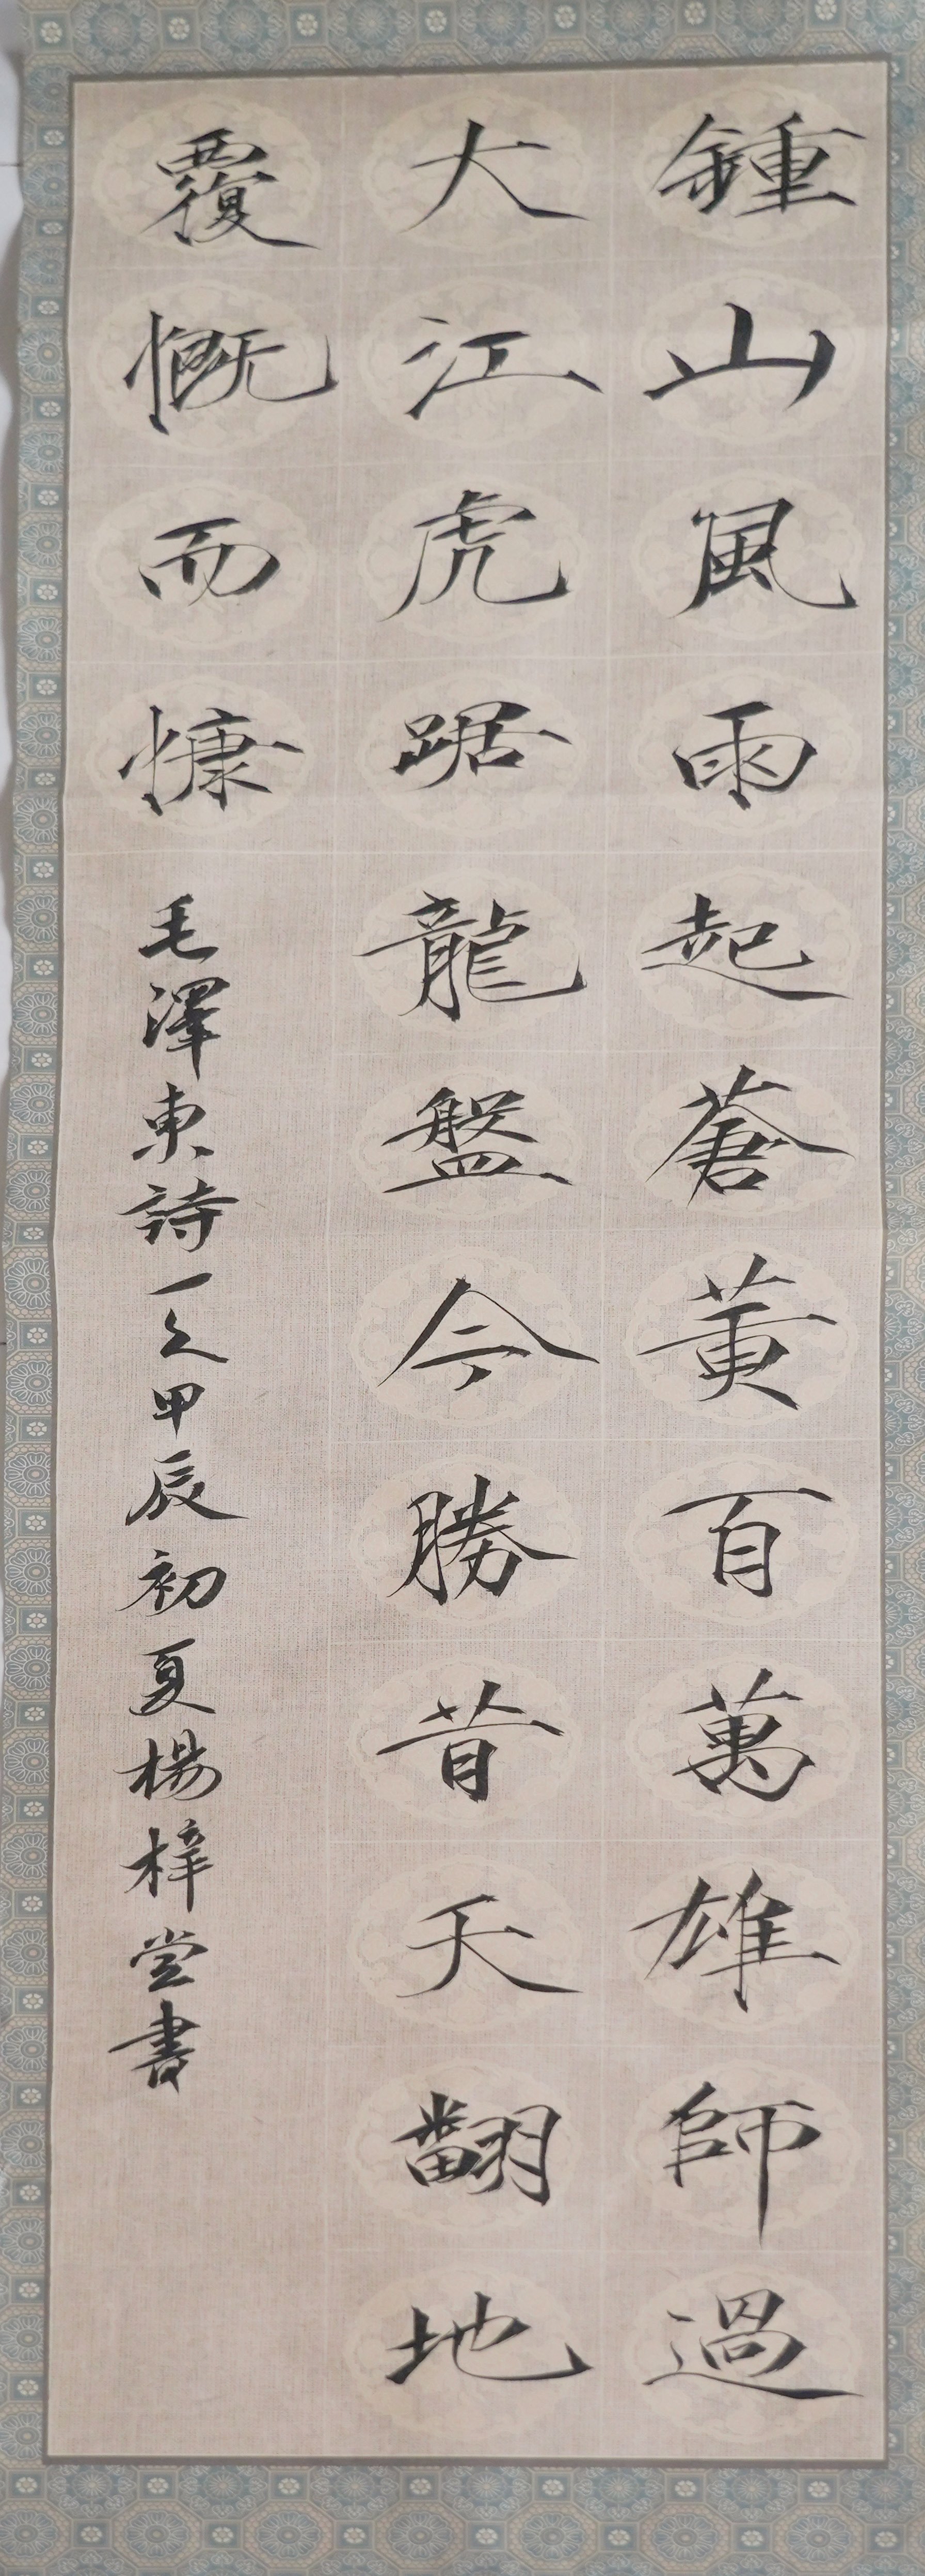 鍾山風雨起蒼黃百萬雄師過
大江虎踞龍盤今勝昔天翻地
覆慨而慷 毛澤東詩一首甲辰初夏楊梓堂書